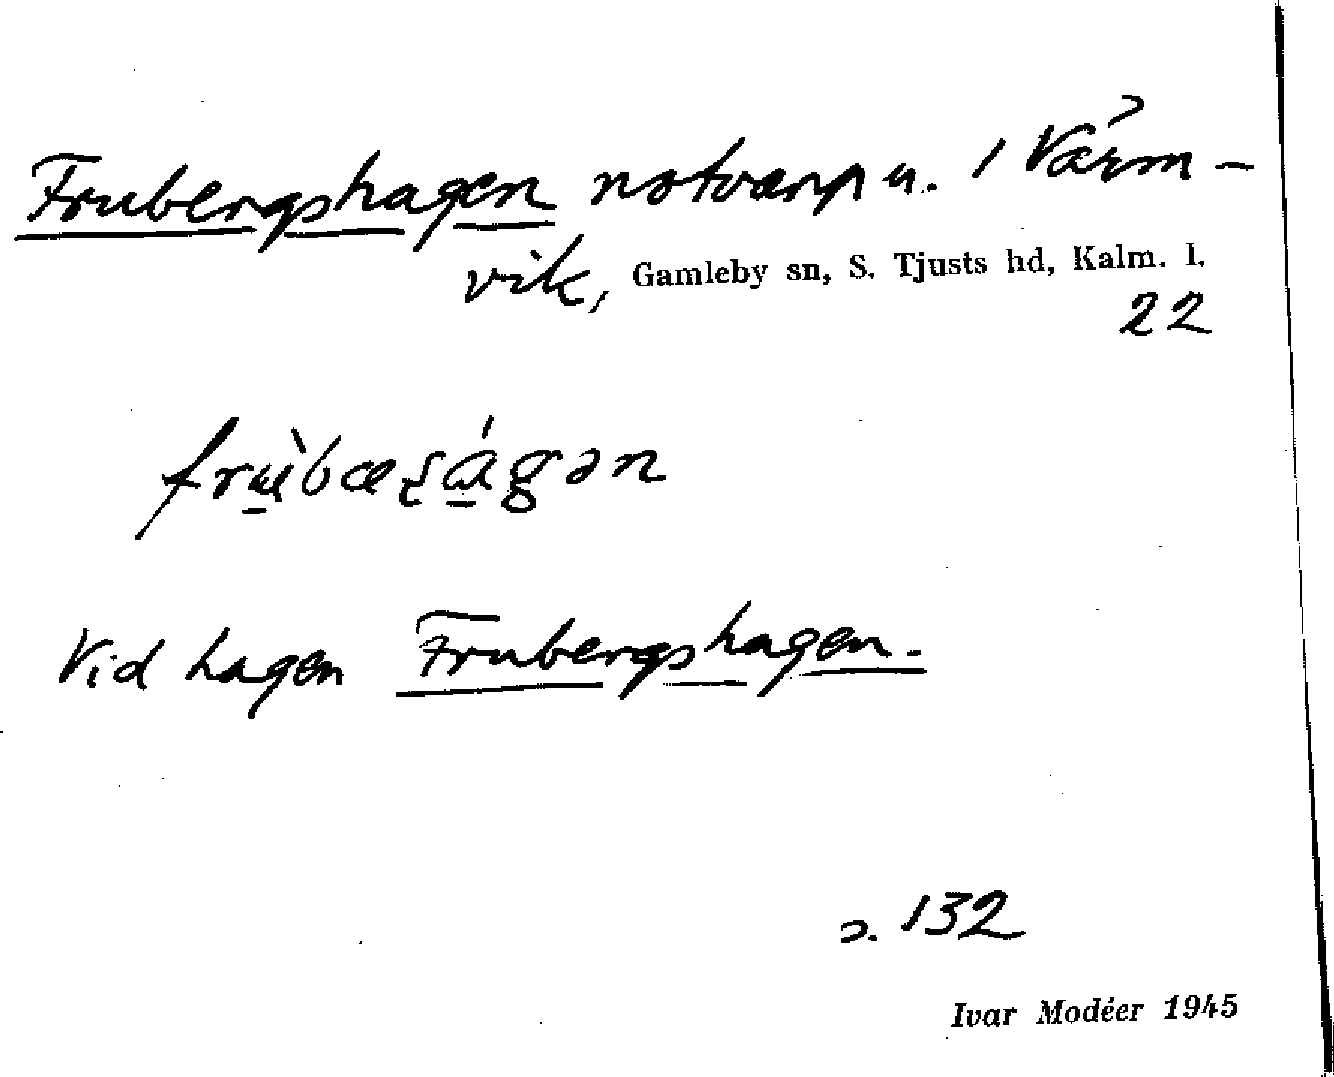 Frubergshagen notvarp u. / Värm-
vik, Gamleby sn, S. Tjusts hd, Kalm. l.
22
Vid hagen Frubergshagen.
s. 132
Ivar Modéer 1945